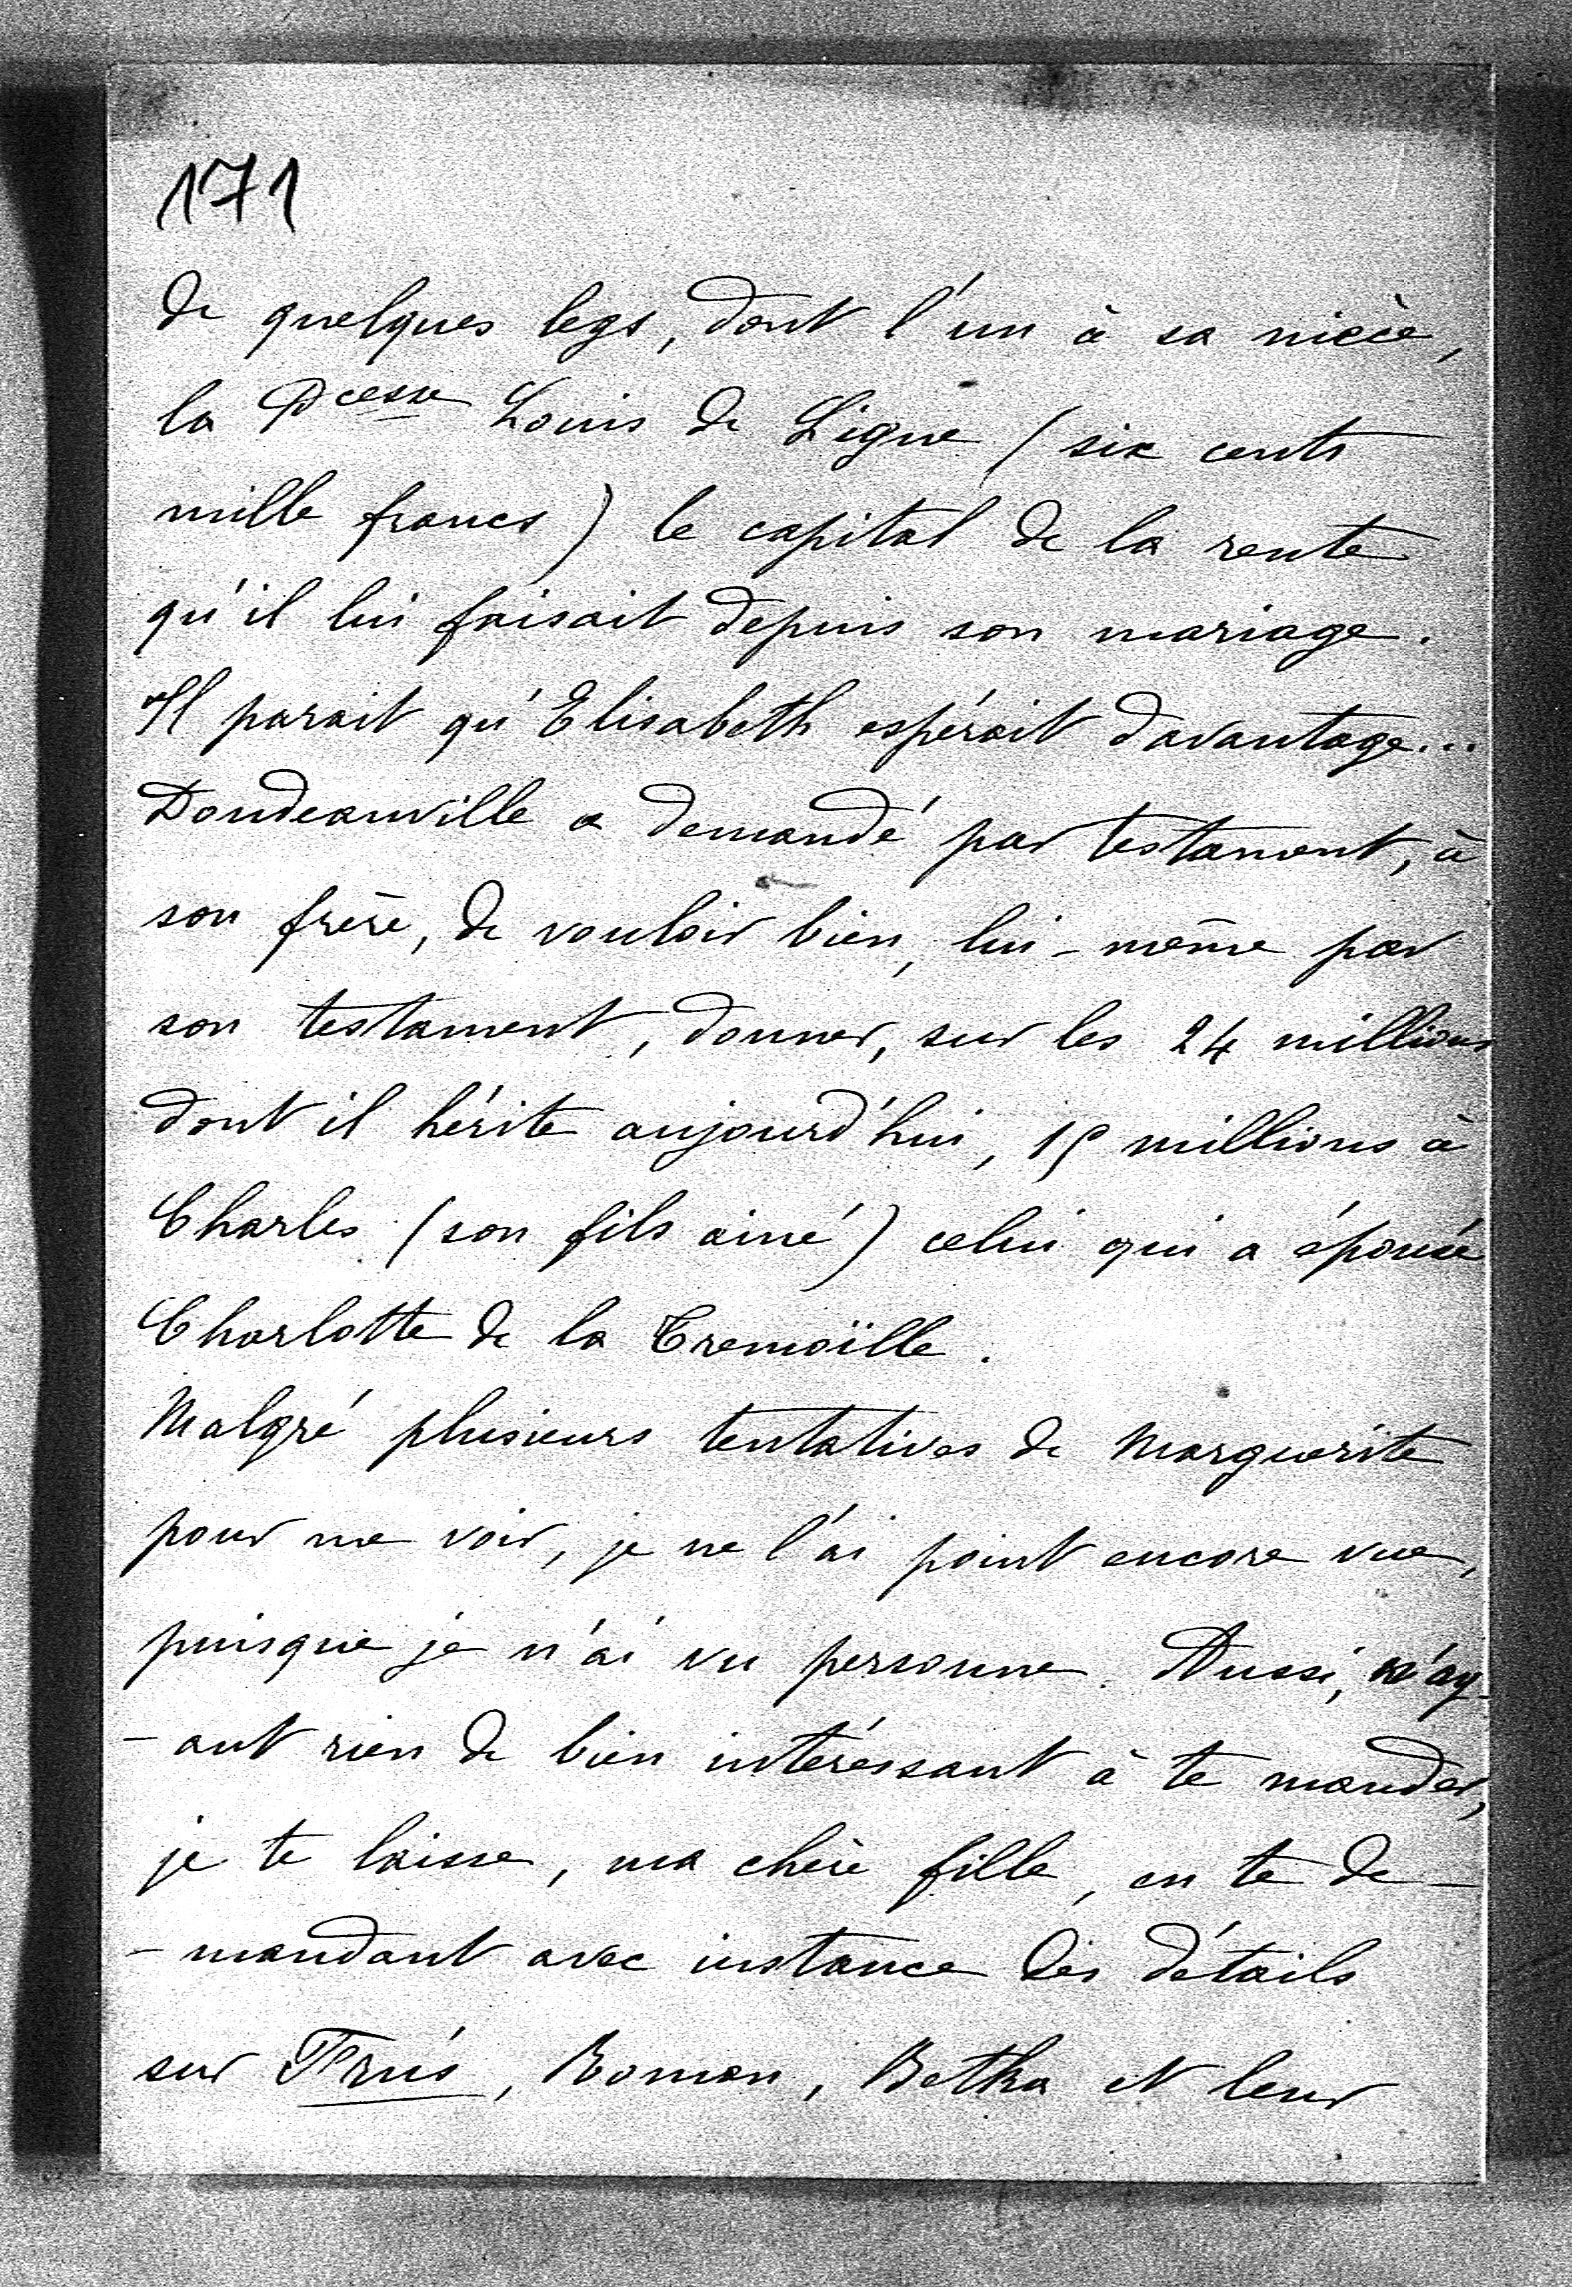 171
de quelques legs, dont l'un à sa nièce,
la Pcesse Louis de Ligne (six cents
mille francs) le capital de la rente
qu'il lui faisait depuis son mariage.
Il parait qu'Elisabeth espérait davantage...
Doudeauville a demandé par testament, à
son frère, de vouloir bien, lui-même par
son testament, donner, sur les 24 millions
dont il hérite aujourd'hui, 15 millions à
Charles (son fils ainé) celui qui a épousé
Charlotte de la Tremoïlle.
Malgré plusieurs tentatives de Marguerite
pour me voir, je ne l'ai point encore vue,
puisque je n'ai vu personne. Aussi, n'ay-
-ant rien de bien intéressant à te mander,
je te laisse, ma chère fille, en te de-
-mandant avec instance des détails
sur , Roman, Betka et leur